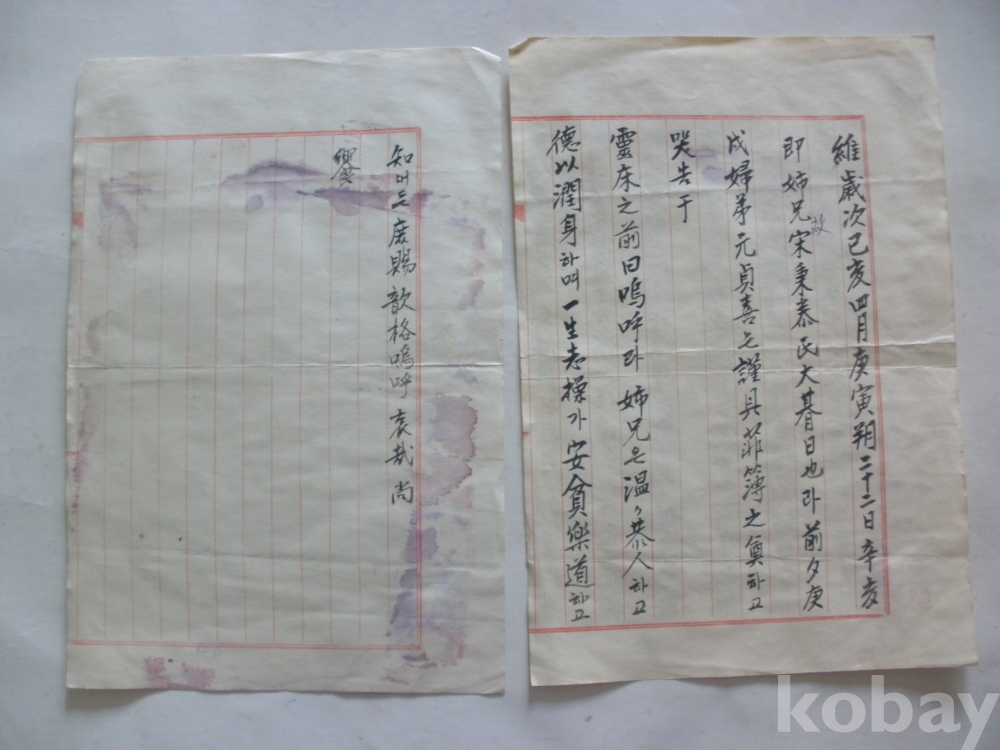 維歲次己亥四月庚寅朔二十二日辛亥
即 姉兄故宋秉泰氏大朞日也라 前夕庚
戌婦弟元貞喜는 謹具菲簿之奠하고
哭告于
靈床之前曰嗚呼라 姉兄은 温々恭人하고
德以潤身하며 一生志操가 安貧樂道하고
知어든 庶賜歆格嗚呼 哀哉 尚
饗
kobay